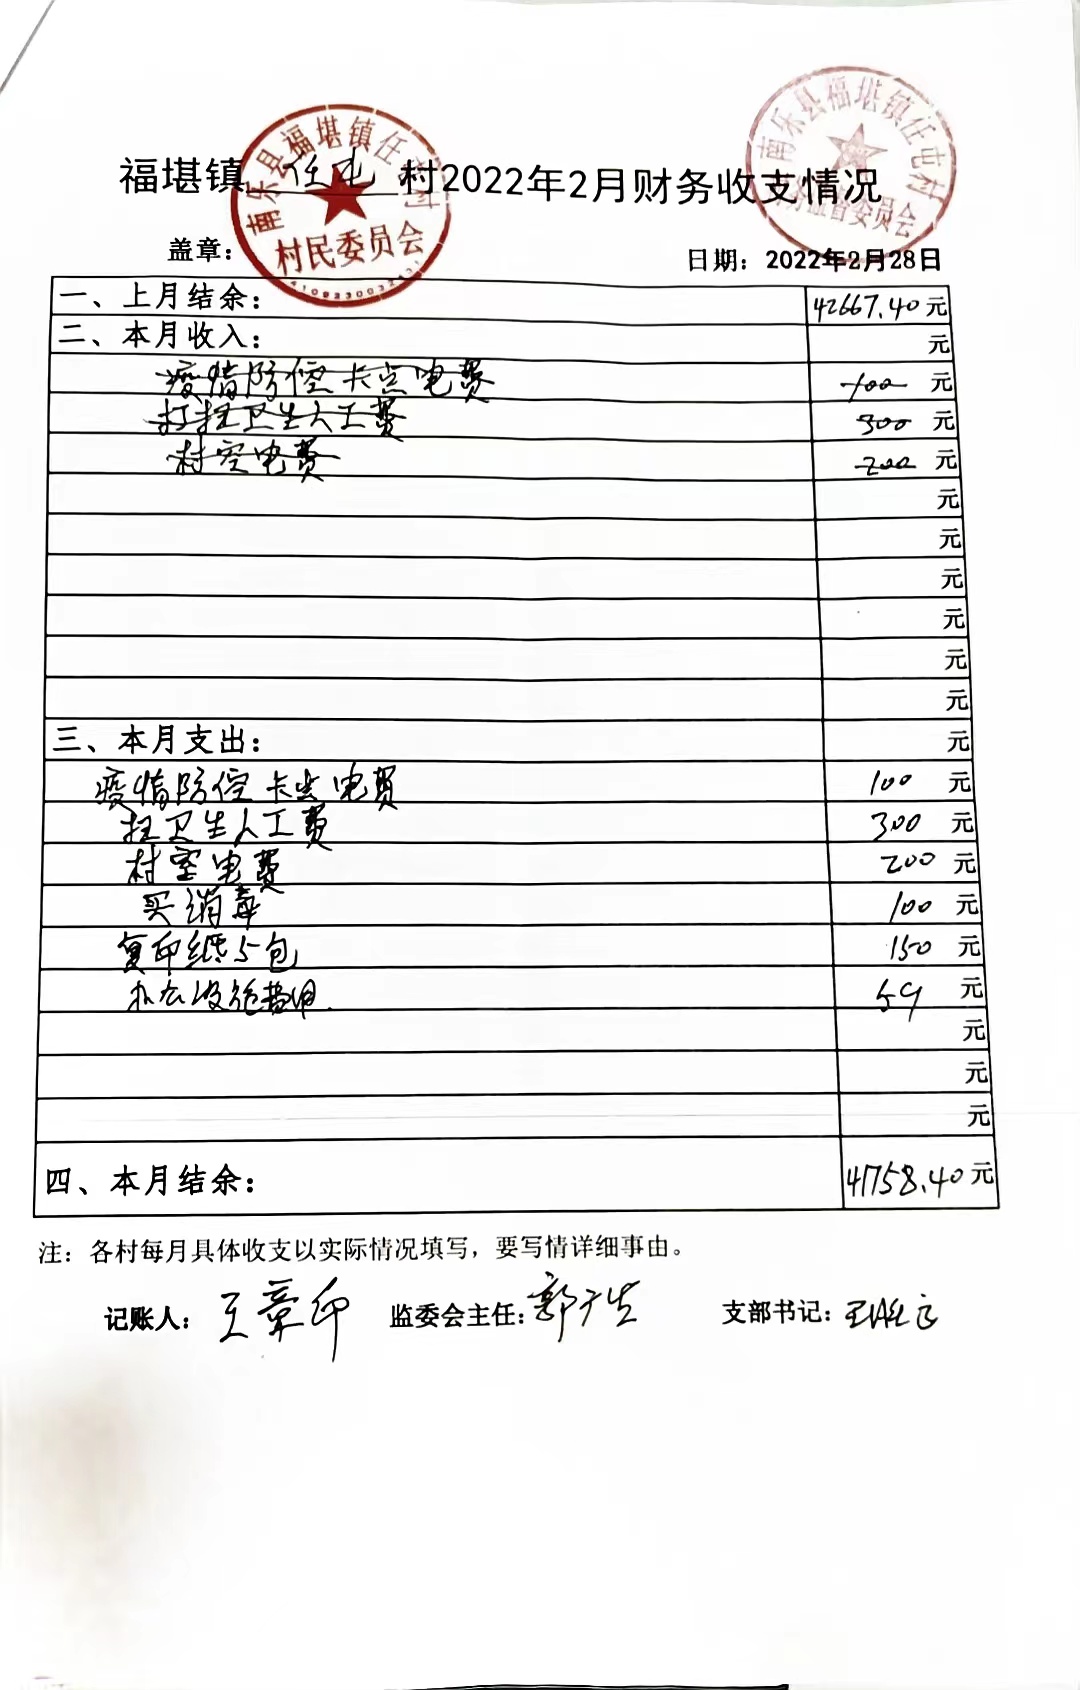 福堪镇 任屯 村2022年2月财务收支情况
南乐县福堪镇任屯村
村民委员会
南乐县福堪镇任屯村
务监督委员会
盖章： 日期：2022年2月28日
一、上月结余： 42667.40元
二、本月收入： 元
疫情防控卡点电费 100 元
打扫卫生人工费 300 元
村室电费 200 元
元
元
元
元
元
元
三、本月支出： 元
疫情防控卡点电费 100 元
扫卫生人工费 300 元
村室电费 200 元
买消毒 100 元
复印纸5包 150 元
办公设施费用. 59 元
元
元
元
四、本月结余： 41758.40元
注：各村每月具体收支以实际情况填写，要写情详细事由。
记账人：王章印 监委会主任：郭广生 支部书记：王